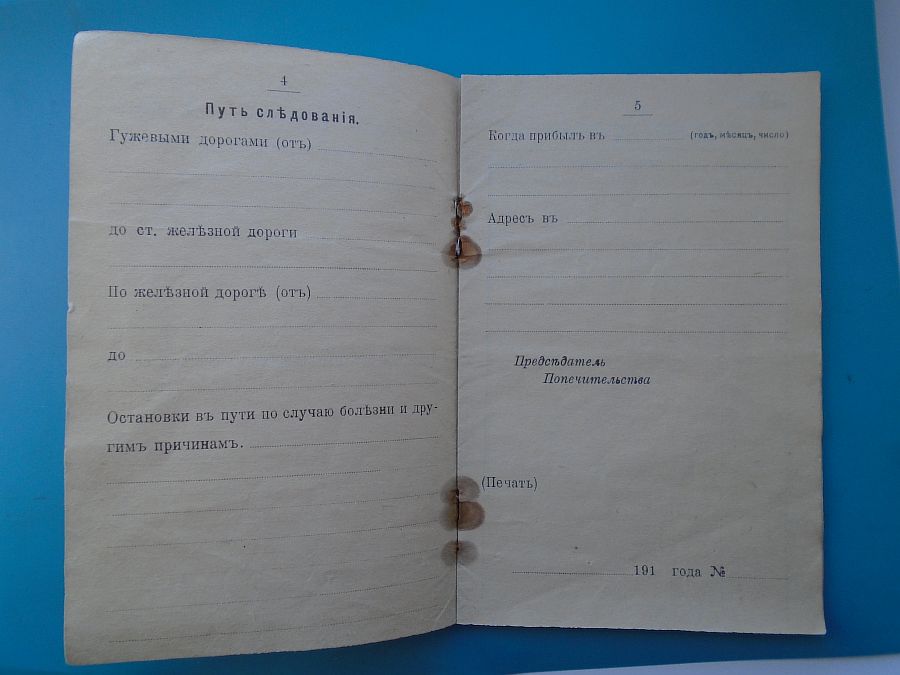 4
Путь слѣдованія.
Гужевыми дорогами (отъ)
до ст. желѣзной дороги
По желѣзной дорогѣ (отъ)
до
Остановки въ пути по случаю болѣзни и дру-
гимъ причинамъ.
5
Когда прибылъ въ (годъ, мѣсяцъ, число)
Адресъ въ
Предсѣдатель
Попечительства
(Печать)
191 года №